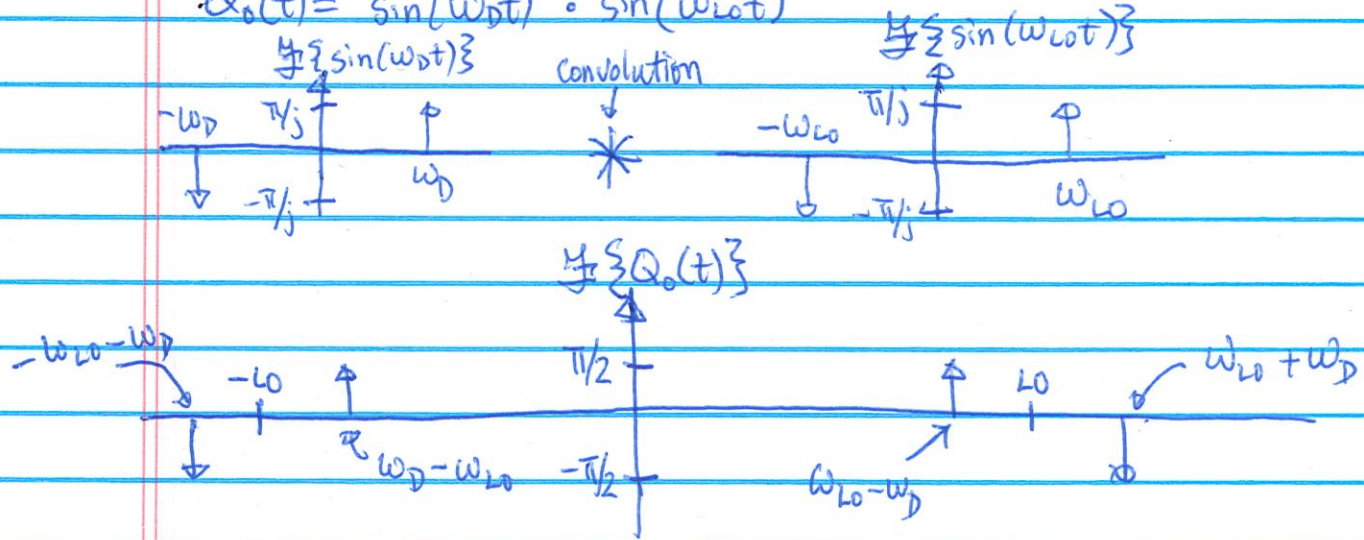 Q₀(t) = sin(ω_D t) · sin(ω_LO t)
ℱ{sin(ω_D t)} convolution ℱ{sin(ω_LO t)}
-ω_D π/j ω_D -π/j * -ω_LO π/j ω_LO -π/j
ℱ{Q₀(t)}
-ω_LO-ω_D -LO π/2 LO ω_LO+ω_D
ω_D-ω_LO -π/2 ω_LO-ω_D